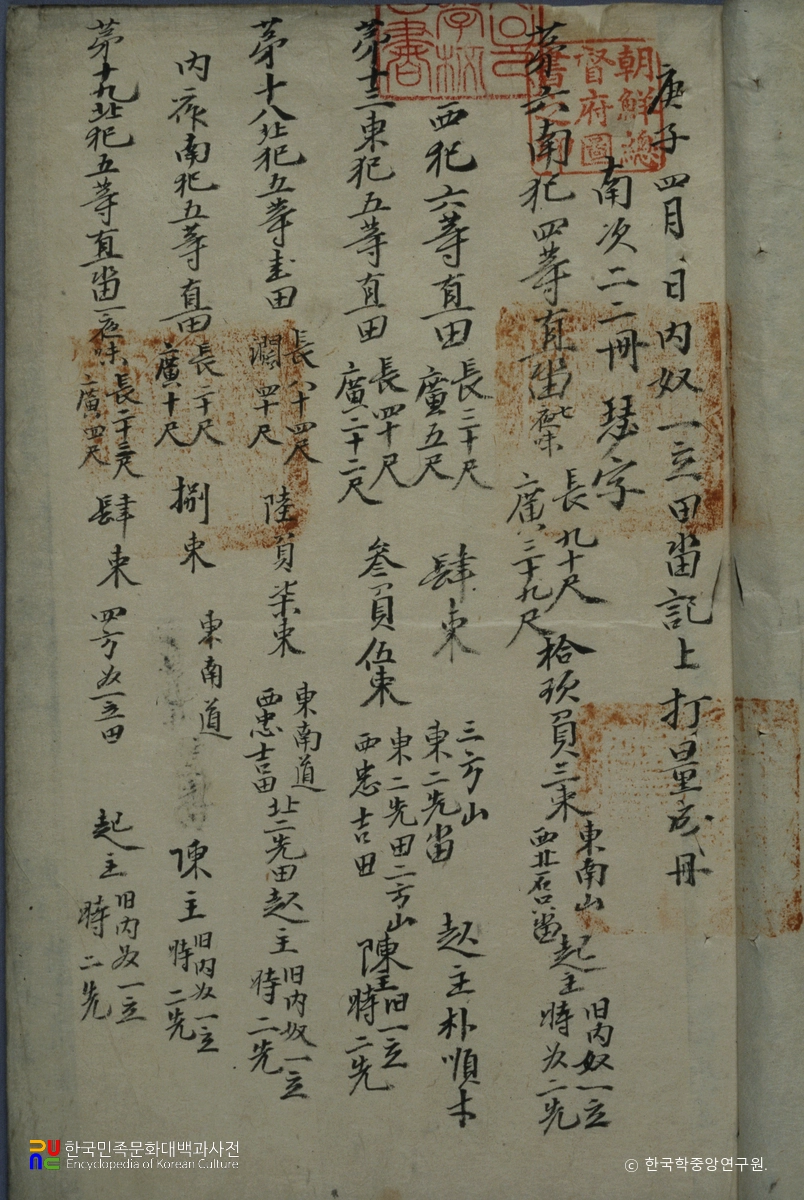 庚子四月 日內奴一立田畓記上打量成冊
南次二二冊 瑟字
第六南犯四等直畓 長九十尺 廣三十九尺 拾玖負三束 東南山 西北石只畓 起主 旧內奴一立 時奴二先
西犯六等直田 長二十尺 廣五尺 肆束 三方山 東二先畓 起主朴順
第十二東犯五等直田 長四十尺 廣二十二尺 叄負伍束 東二先田二方山 西忠吉田 陳主 旧一立 時二先
第十八北犯五等圭田 長八十四尺 濶四十尺 陸負柒束 東南道 西忠吉畓 北二先田 起主 旧內奴一立 時二先
內 南犯五等直田 長二十尺 廣十尺 捌束 東南道 陳主 旧內奴一立 時二先
第十九北犯五等直畓 長二十三尺 廣四尺 肆束 四方奴一立田 起主 旧內奴一立 時二先
朝鮮總督府圖書之印
한국민족문화대백과사전
Encyclopedia of Korean Culture
ⓒ 한국학중앙연구원.